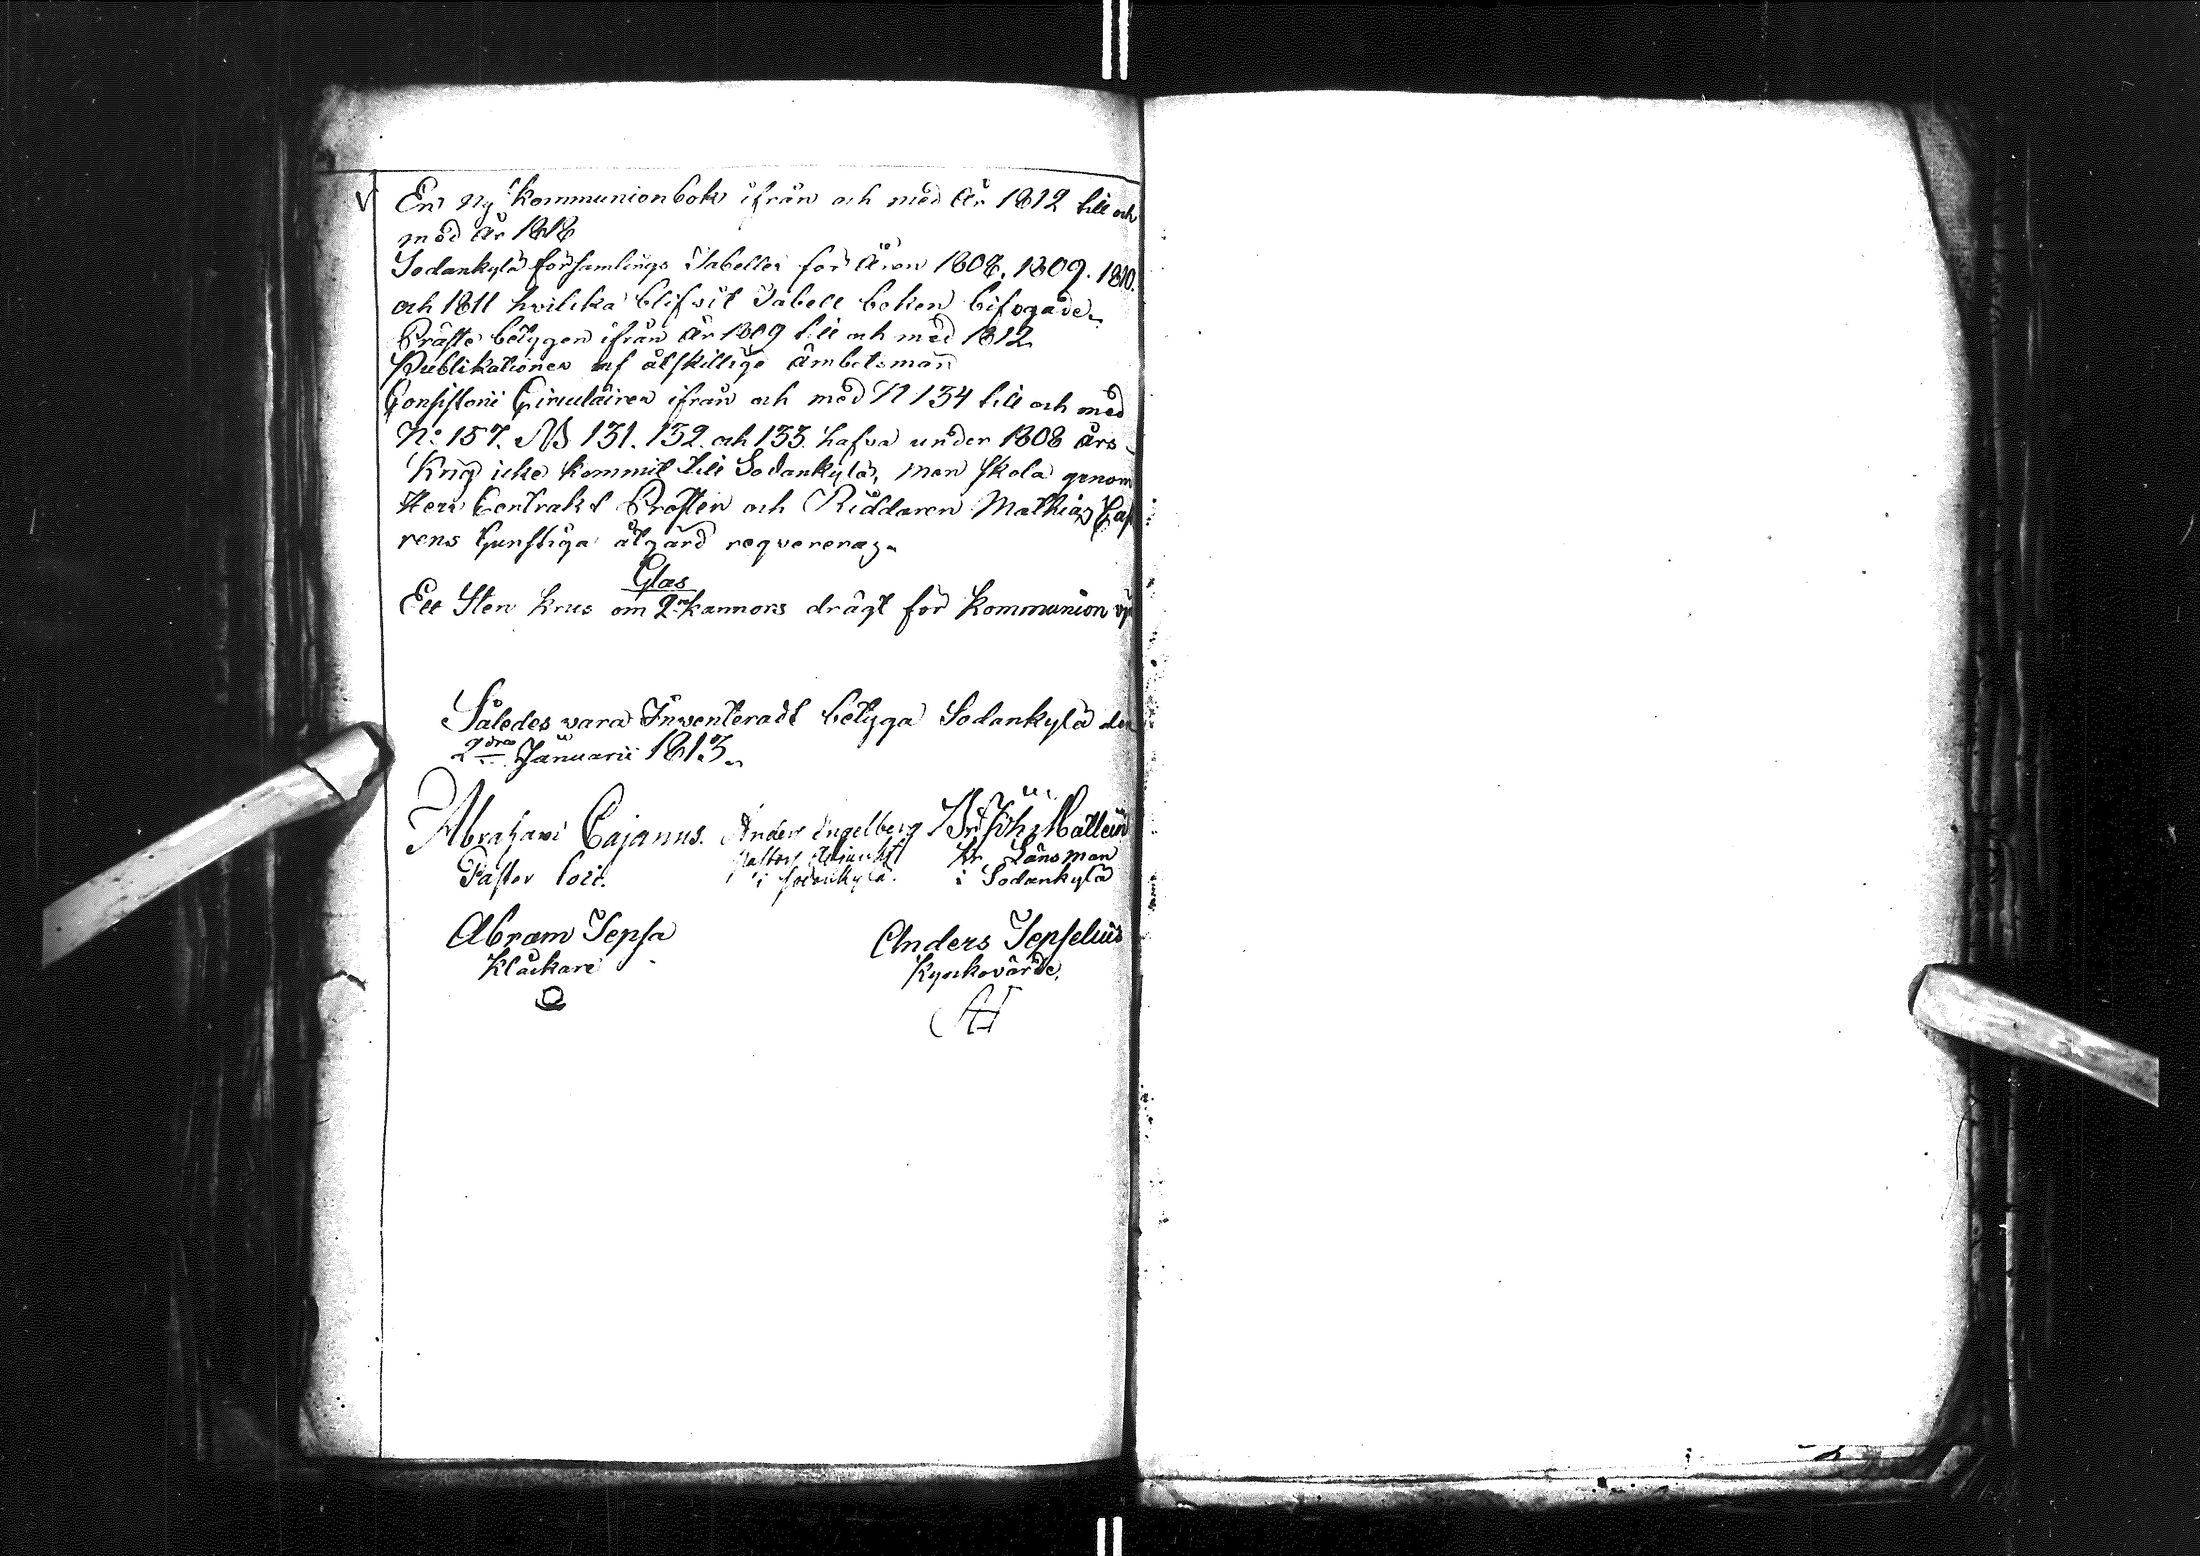 V En ny Kommunionbok ifrån och med År 1812 till och
med år 1818
Sodankylä församlings Tabeller för Åren 1808. 1809. 1810.
och 1811 hvilcka blifvit Tabell boken bifogade.
Präste betygen ifrån år 1809 till och med 1812
Publikationer af åtskillige Ämbetsmän
Consistorii Circulairer ifrån och med N 134 till och med
No 157. NB 131. 132. och 133. hafva under 1808 års
Krig icke kommit till Sodankylä, men skola genom
Herr Contrakt Prosten och Riddaren Mathias Cas
rens Gunstiga åtgärd reqvereras.
Glas
Ett Sten krus om 2ne kannors drägt för Kommunion
Således vara Inventeradt betyga Sodankylä den
2dra Januarii 1813.
Abraham Cajanus. Anders Engelberg Mattein
Pastor loci. Pastors Adjunkt Kr Länsman
i Sodankylä. i Sodankylä
Abram Sepsa Anders Sepselius
Klåckare Kyrkovärde.
AH